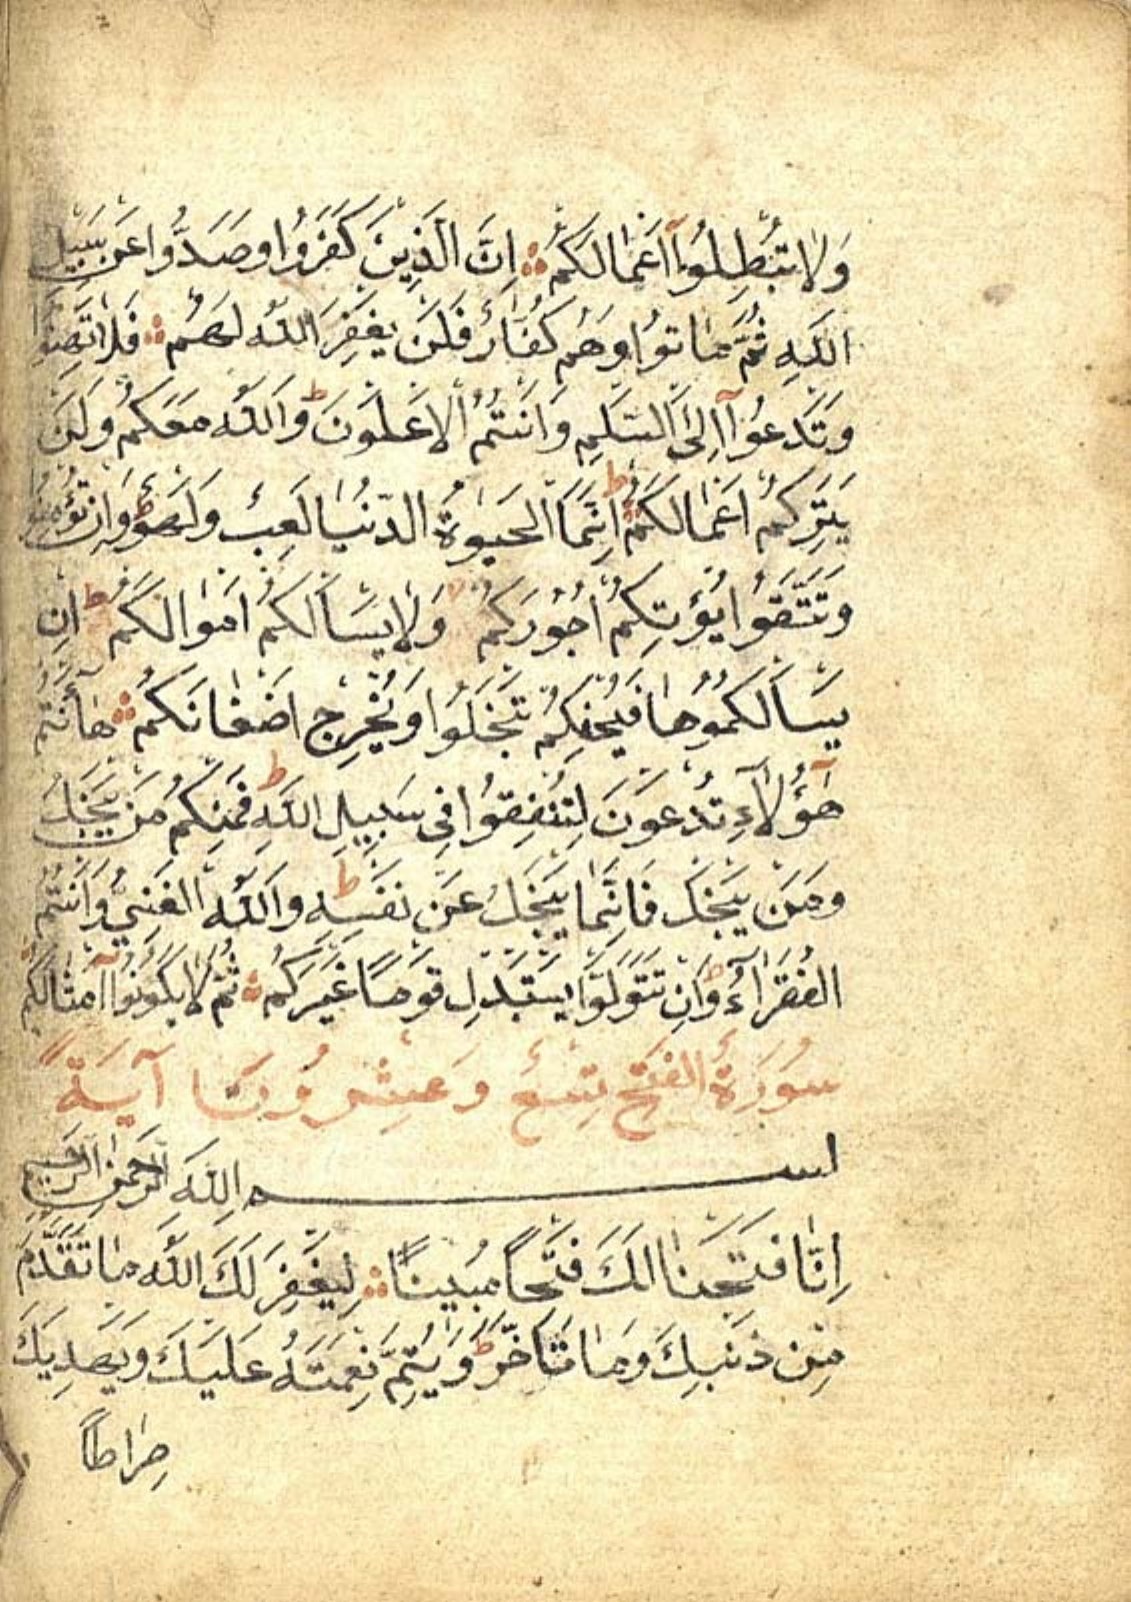 وَلَا تُبْطِلُوٓا اَعْمَالَكُمْ اِنَّ الَّذِينَ كَفَرُوا وَصَدُّوا عَنْ سَبِيلِ
اللّٰهِ ثُمَّ مَاتُوا وَهُمْ كُفَّارٌ فَلَنْ يَغْفِرَ اللّٰهُ لَهُمْ فَلَا تَهِنُوا
وَتَدْعُوٓا اِلَى السَّلْمِ وَاَنْتُمُ الْاَعْلَوْنَ ط وَاللّٰهُ مَعَكُمْ وَلَنْ
يَتِرَكُمْ اَعْمَالَكُمْ ط اِنَّمَا الْحَيٰوةُ الدُّنْيَا لَعِبٌ وَلَهْوٌ ط وَاِنْ تُؤْمِنُوا
وَتَتَّقُوا يُؤْتِكُمْ اُجُورَكُمْ وَلَا يَسْاَلْكُمْ اَمْوَالَكُمْ ط اِنْ
يَسْاَلْكُمُوهَا فَيُحْفِكُمْ تَبْخَلُوا وَيُخْرِجْ اَضْغَانَكُمْ هَآ اَنْتُمْ
هٰٓؤُلَآءِ تُدْعَوْنَ لِتُنْفِقُوا فِي سَبِيلِ اللّٰهِ ط فَمِنْكُمْ مَنْ يَبْخَلُ
وَمَنْ يَبْخَلْ فَاِنَّمَا يَبْخَلُ عَنْ نَفْسِهِ ط وَاللّٰهُ الْغَنِيُّ وَاَنْتُمُ
الْفُقَرَآءُ ط وَاِنْ تَتَوَلَّوْا يَسْتَبْدِلْ قَوْمًا غَيْرَكُمْ ثُمَّ لَا يَكُونُوٓا اَمْثَالَكُمْ
سُورَةُ الْفَتْحِ تِسْعٌ وَعِشْرُونَ آيَةً
بِسْمِ اللّٰهِ الرَّحْمٰنِ الرَّحِيمِ
اِنَّا فَتَحْنَا لَكَ فَتْحًا مُبِينًا لِيَغْفِرَ لَكَ اللّٰهُ مَا تَقَدَّمَ
مِنْ ذَنْبِكَ وَمَا تَاَخَّرَ ط وَيُتِمَّ نِعْمَتَهُ عَلَيْكَ وَيَهْدِيَكَ
صِرَاطًا